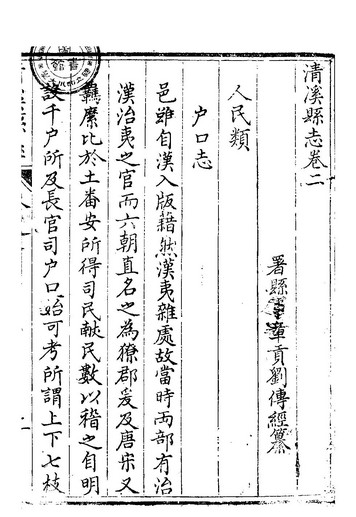 清溪縣志卷二
署縣事章貢劉傳經纂
人民類
户口志
邑雖自漢入版藉然漢夷雜處故當時两部有治
漢治夷之官而六朝直名之為獠郡爰及唐宋又
羈縻比於土番安所得司民献民數以稽之自明
設千户所及長官司户口始可考所謂上下七枝